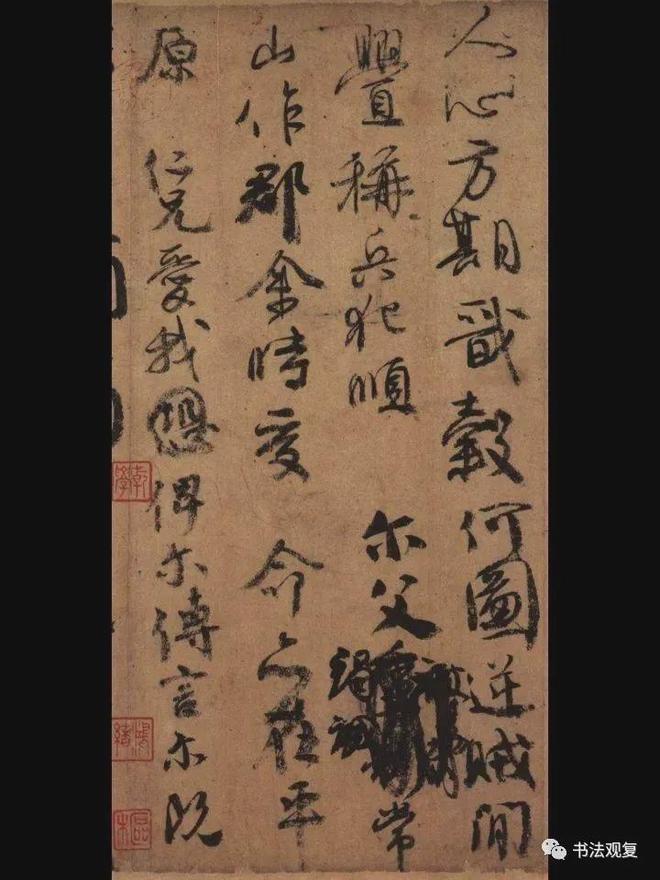 人心方期戩穀何圖逆賊閒
舋稱兵犯順 尓父竭誠常
山作郡余時受 命亦在平
原 仁兄愛我俾尓傳言尓既
书法观复